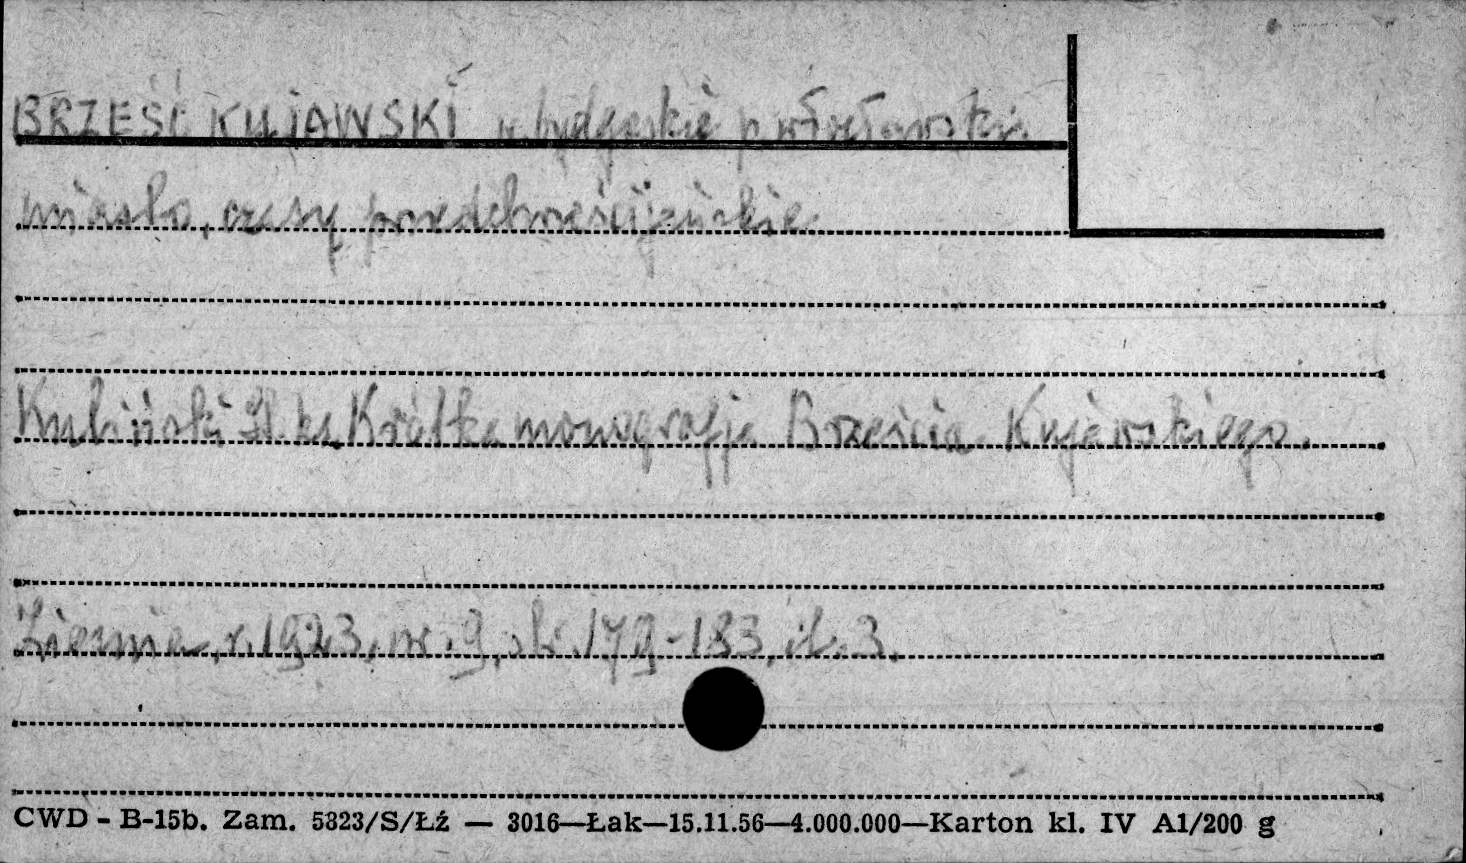 BRZEŚĆ KUJAWSKI w. bydgoskie p. włocławski.
miasto, czasy przedchrześcijańskie.
Kubiński St. ks. Krótka monografja Brześcia Kujawskiego.
Ziemia, r. 1923, nr. 9, str. 179-183, il. 3.
CWD - B-15b. Zam. 5323/S/Łź — 3016—Łak—15.11.56—4.000.000—Karton kl. IV A1/200 g